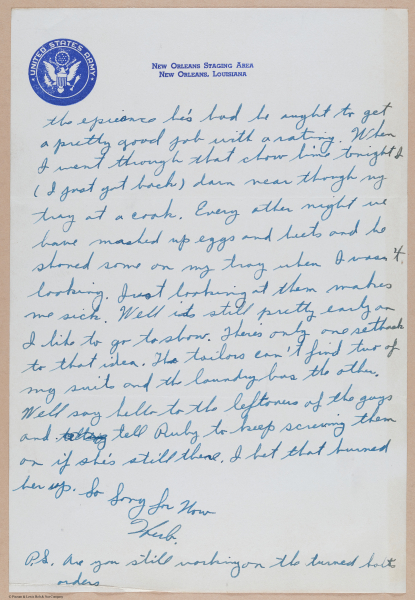 UNITED STATES ARMY
NEW ORLEANS STAGING AREA
NEW ORLEANS, LOUISIANA
the epicence he's had he ought to get
a pretty good job with a rating. When
I went through that chow line tonight I
(I just got back) darn near though my
tray at a cook. Every other night we
have mashed up eggs and beets and he
shoved some on my tray when I wasn't
looking. Just looking at them makes
me sick. Well its still pretty early on
I like to go to show. Theres only one setback
to that idea. The tailors can't find two of
my suits and the laundry has the other.
Well say hello to the leftovers of the guys
and tell Ruby to keep screwing them
on if she's still there. I bet that burned
her up. So Long for Now
Herb.
P.S. Are you still working on the turned bolts
orders